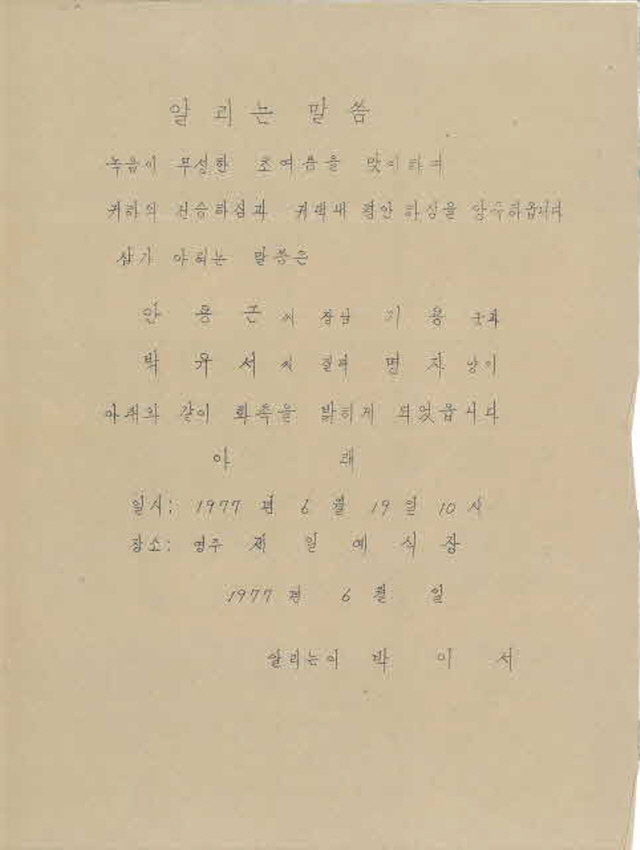 알리는 말씀
녹음이 무성한 초여름을 맞이하여
귀하의 건승하심과 귀댁내 평안하심을 앙축하옵니다
삼가 아뢰는 말씀은
안용준씨 장남 기용군과
박우서씨 장녀 명자양이
아래와 같이 화촉을 밝히게 되었읍니다
아 래
일시: 1977 년 6 월 19 일 10 시
장소: 영주 제일예식장
1977 년 6 월 일
알리는이 박이서